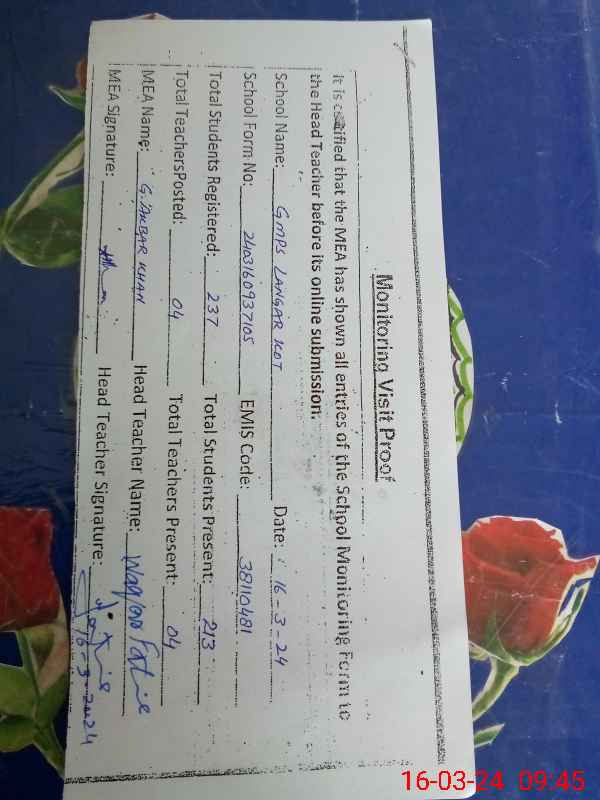 Monitoring Visit Proof
It is certified that the MEA has shown all entries of the School Monitoring Form to
the Head Teacher before its online submission.
School Name: GMPS LANGAR KOT Date: 16-3-24
School Form No: 2403160937105 EMIS Code: 38110481
Total Students Registered: 237 Total Students Present: 213
Total TeachersPosted: 04 Total Teachers Present: 04
MEA Name: G. AKBAR KHAN Head Teacher Name:
MEA Signature: Head Teacher Signature:
16-3-2024
16-03-24 09:45